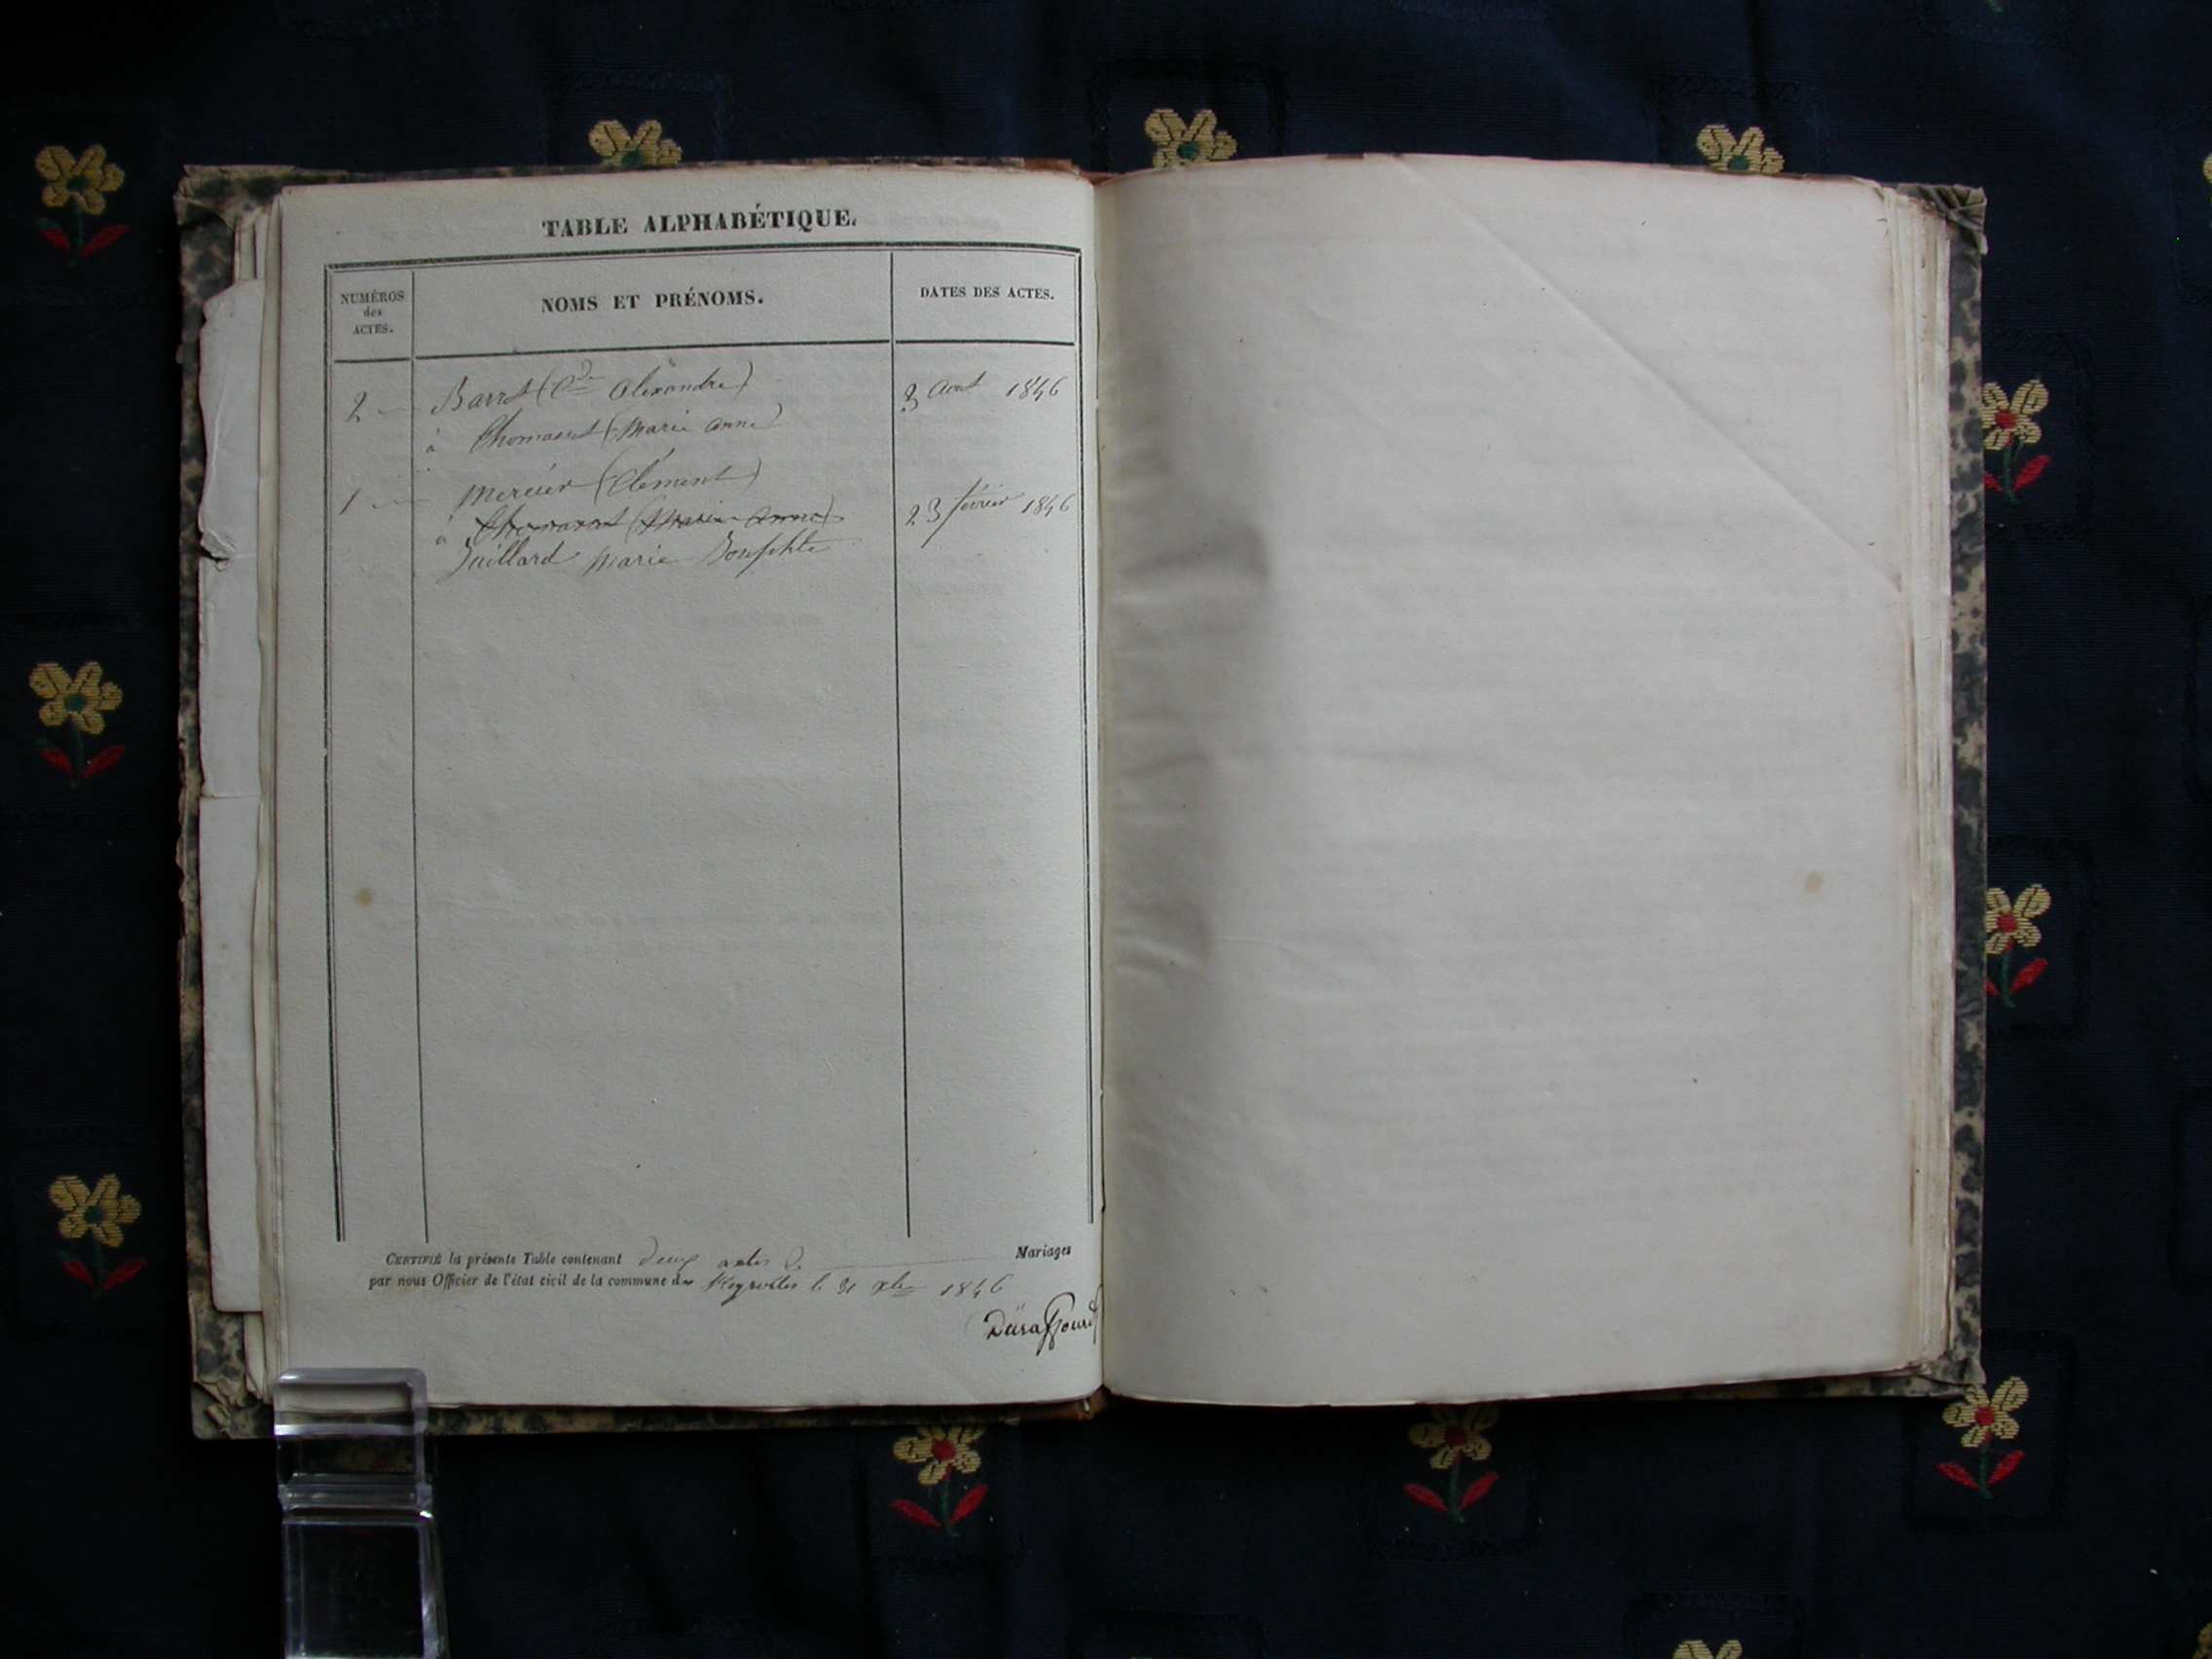 TABLE ALPHABÉTIQUE.
NUMÉROS
des
ACTES.
NOMS ET PRÉNOMS.
DATES DES ACTES.
2 Barrot (Cde Alexandre) 3 Aout 1846
à Thomasset (Marie Anne)
1 Mercier (Clément)
à Thomasset (Marie Anne) 23 février 1846
Juillard Marie Josephte
CERTIFIÉ la présente Table contenant deux actes 2 Mariages
par nous Officier de l'état civil de la commune de Meyrolles le 31 Xbre 1846
Duraffourd